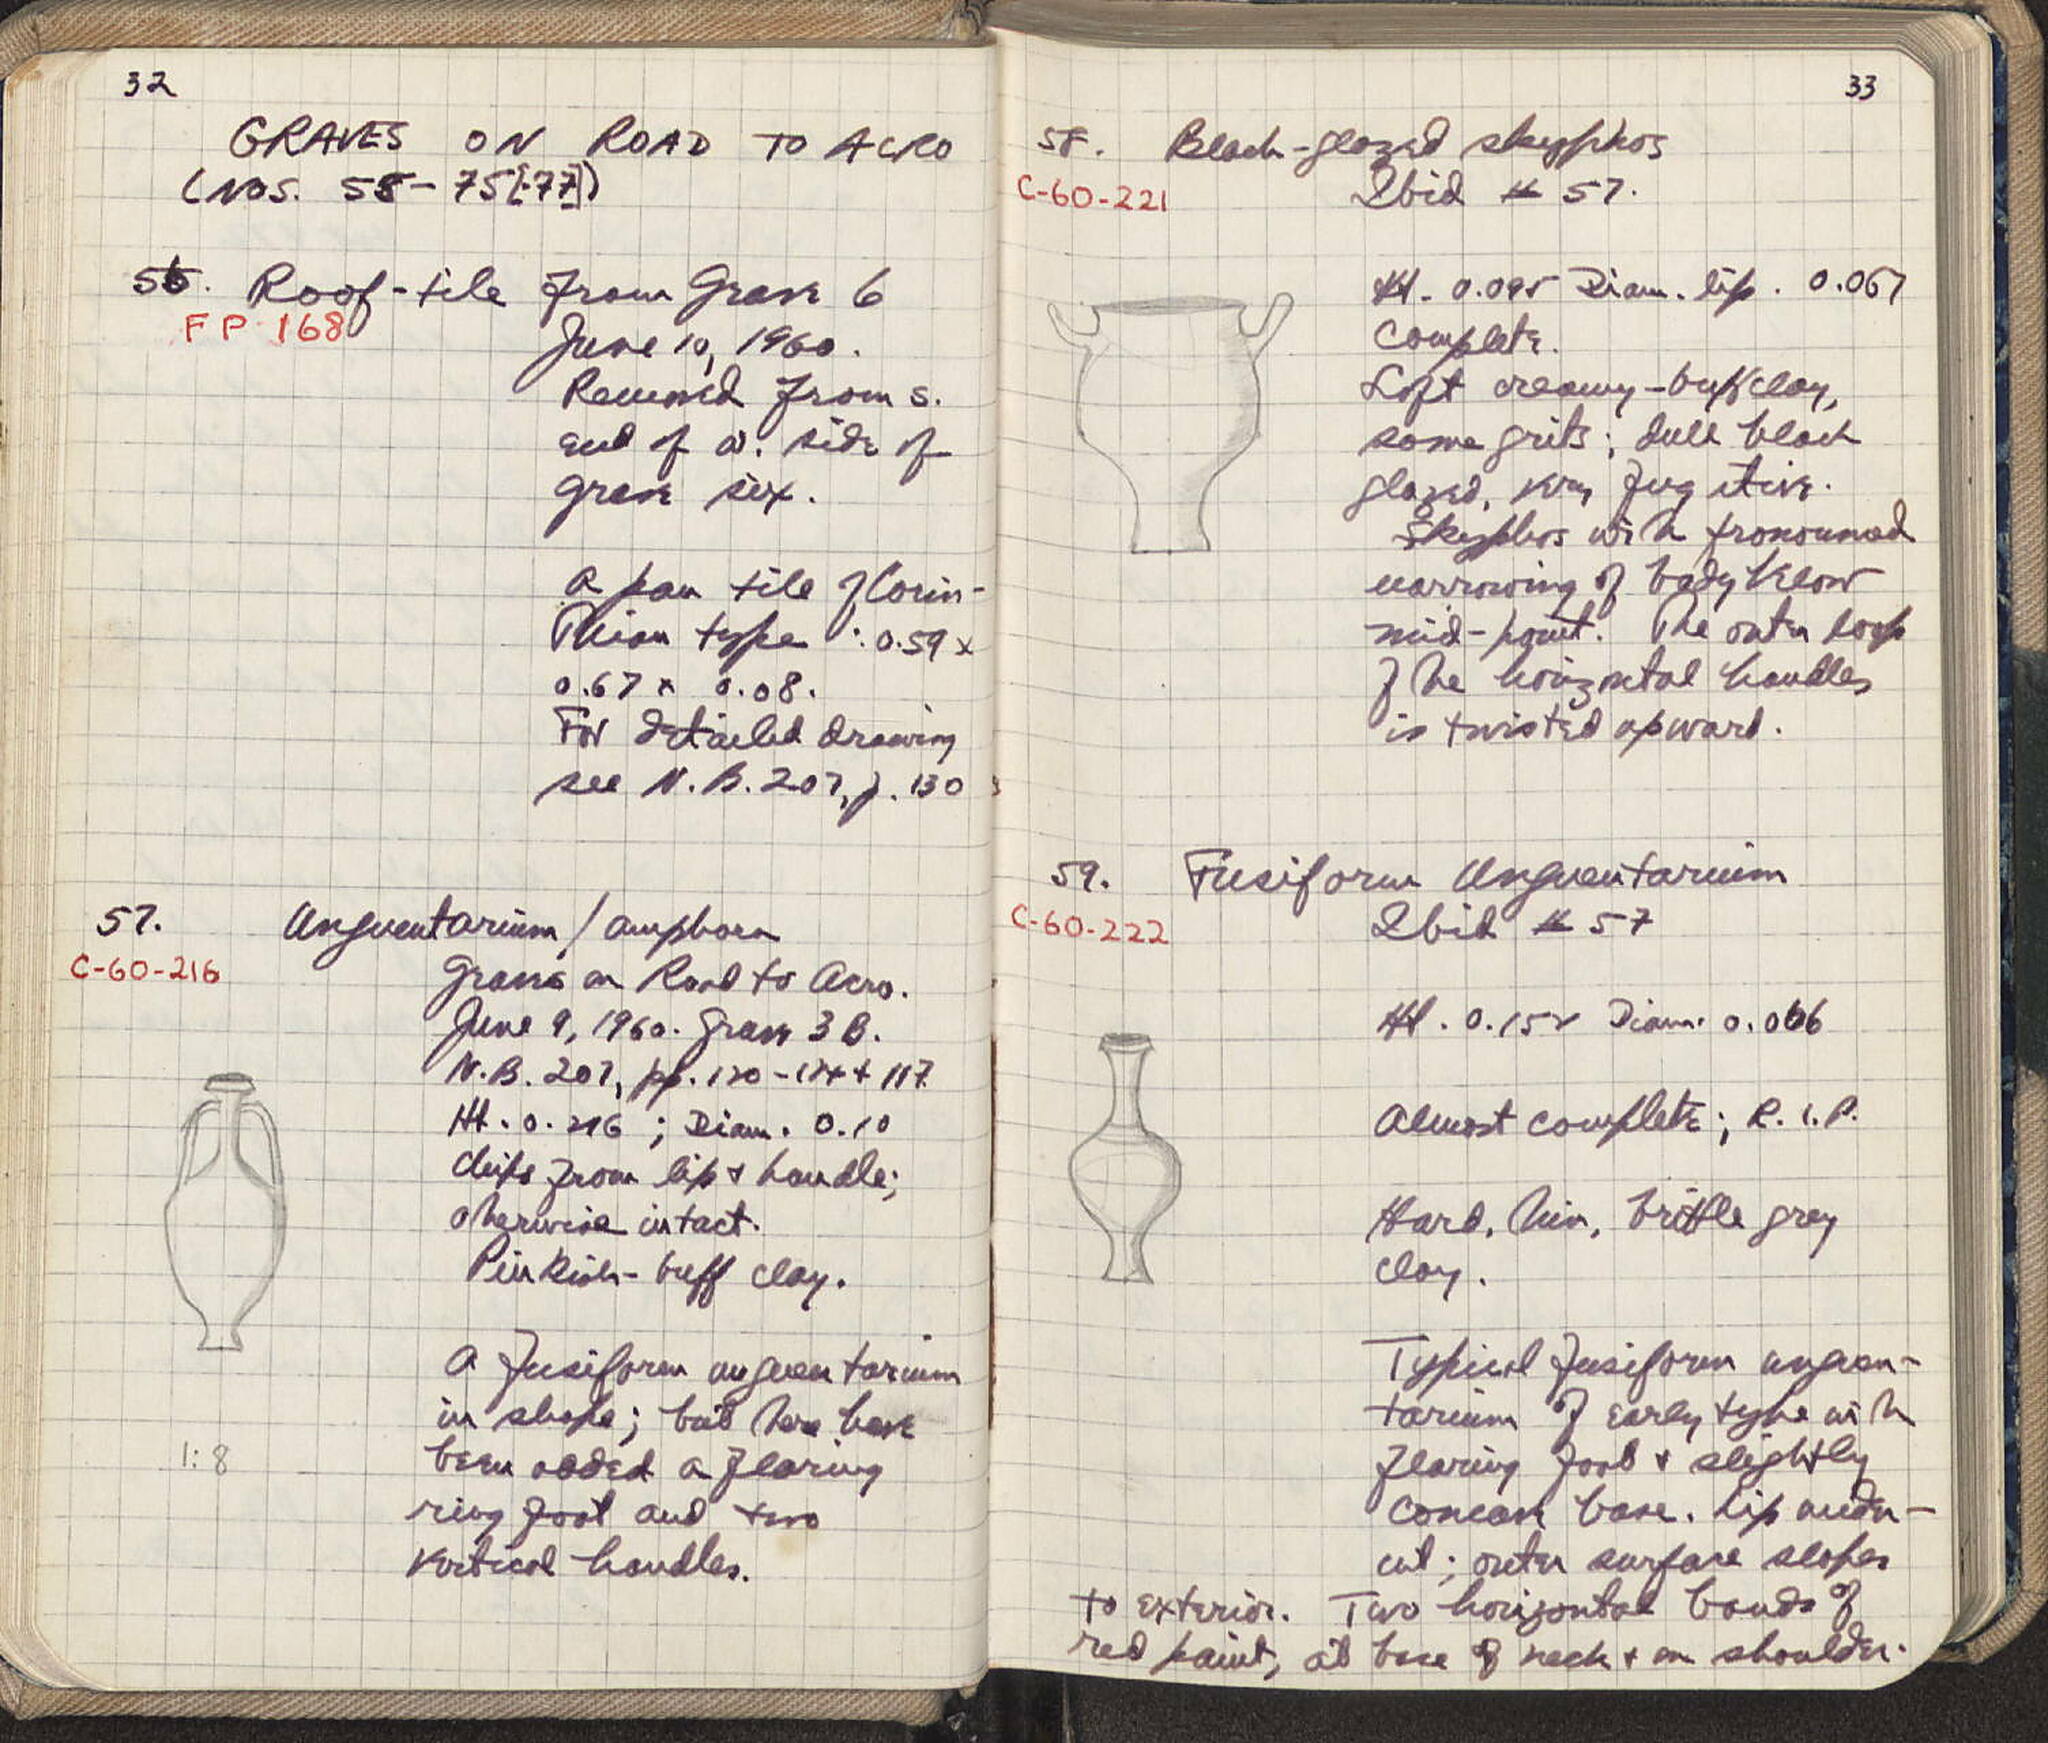 32
GRAVES ON ROAD TO ACRO
(NOS. 58-75[-77])
56. Roof-tile from Grave 6
FP 168
June 10, 1960.
Removed from S.
end of W. side of
grave six.
A pan tile of Corin-
thian type: 0.59 x
0.67 x 0.08.
For detailed drawing
see N.B. 207, p. 130
57. Unguentarium / amphora
C-60-216
Graves on Road to Acro.
June 9, 1960. Grave 3 B.
N.B. 207, pp. 120-124 + 117
Ht. 0.216; Diam. 0.10
Chips from lip + handle;
otherwise intact.
Pinkish-buff clay.
A fusiform unguentarium
in shape; but there have
been added a flaring
ring foot and two
vertical handles.
1:8
33
58. Black-glazed skyphos
C-60-221
Ibid # 57.
Ht. 0.095 Diam. lip. 0.067
Complete.
Soft creamy-buff clay,
some grits; dull black
glazed, very fugitive.
Skyphos with pronounced
narrowing of body below
mid-point. The outer loop
of the horizontal handles
is twisted upward.
59. Fusiform Unguentarium
C-60-222
Ibid # 57
Ht. 0.152 Diam. 0.066
Almost complete; R.I.P.
Hard, thin, brittle grey
clay.
Typical fusiform unguen-
tarium of early type with
flaring foot + slightly
concave base. Lip under-
cut; outer surface slopes
to exterior. Two horizontal bands of
red paint, at base of neck + on shoulder.